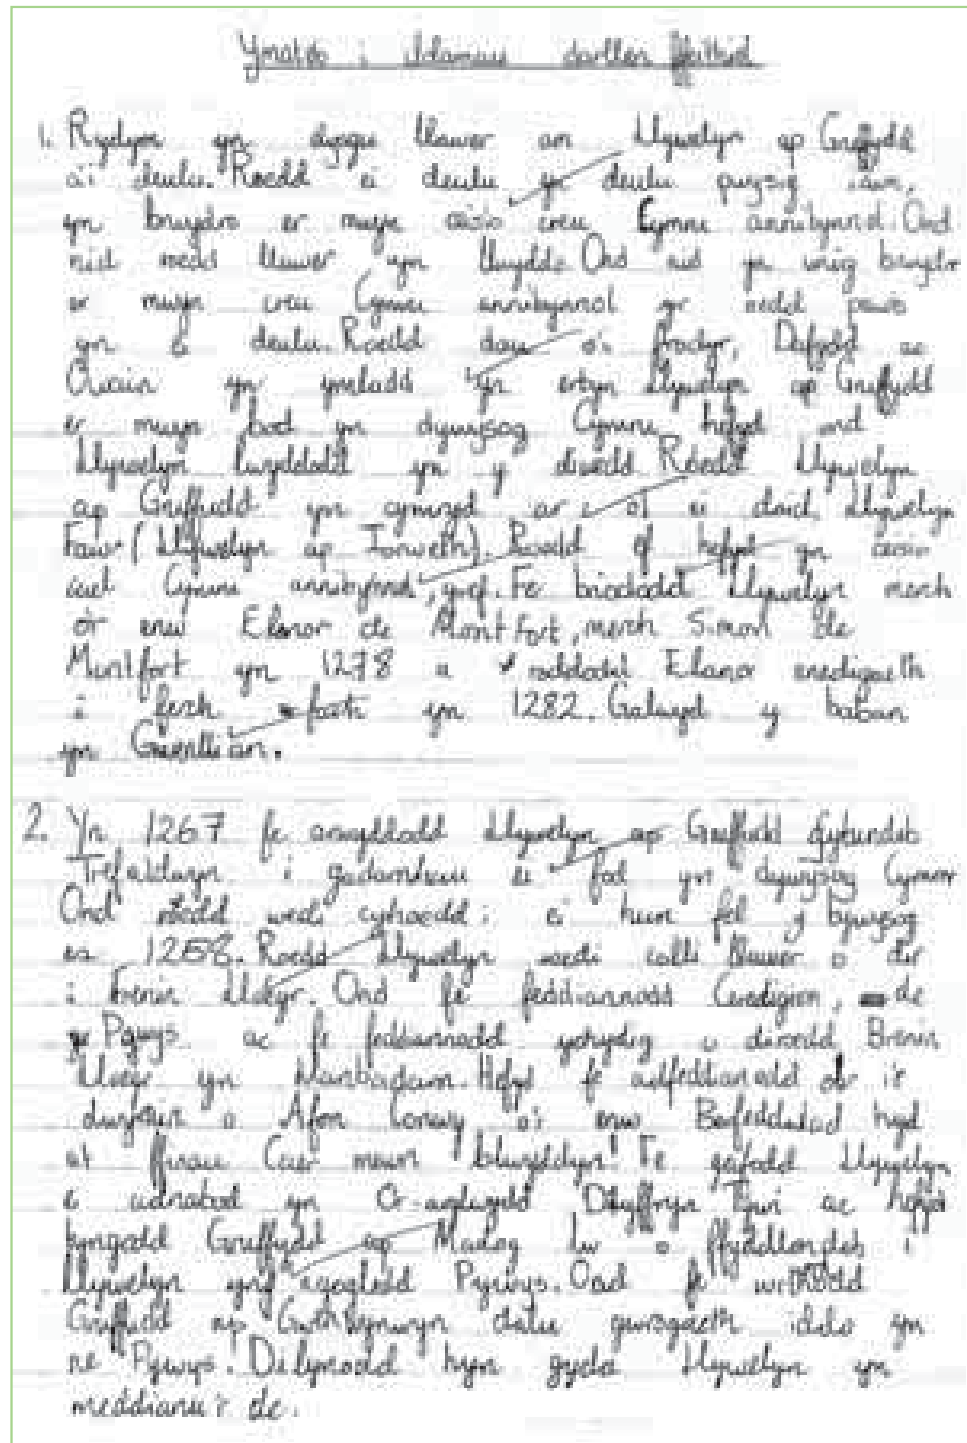 Ymateb i ddarnau darllen ffeithiol
1. Rydym yn dysgu llawer am Llywelyn ap Gruffydd
a'i deulu. Roedd ei deulu yn deulu pwysig iawn,
yn brwydro er mwyn ceisio creu Cymru annibynnol. Ond
nid oedd llawer yn llwyddo. Ond nid yn unig brwydr
er mwyn creu Cymru annibynnol yr oedd pawb
yn ei deulu. Roedd dau o'i frodyr, Dafydd ac
Owain yn ymladd yn erbyn Llywelyn ap Gruffydd
er mwyn bod yn dywysog Cymru hefyd ond
Llywelyn lwyddodd yn y diwedd. Roedd Llywelyn
ap Gruffudd yn cymryd ar ôl ei daid, Llywelyn
Fawr (Llywelyn ap Iorweth). Roedd ef hefyd yn ceisio
cael Cymru annibynnol, gref. Fe briododd Llywelyn merch
o'r enw Elanor de Montfort, merch Simon de
Montfort yn 1278 a roddodd Elanor enedigaeth
i ferch fach yn 1282. Galwyd y baban
yn Gwenllian.
2. Yn 1267 fe arwyddodd Llywelyn ap Gruffudd Cytundeb
Trefaldwyn i gadarnhau ei fod yn dywysog Cymru
Ond roedd wedi cyhoeddi ei hun fel y tywysog
ers 1258. Roedd Llywelyn wedi colli llawer o dir
i Frenin Lloegr. Ond fe feddiannodd Ceredigion, de
Pywys ac fe feddiannodd ychydig o diroedd Brenin
Lloegr yn Llanbadarn. Hefyd fe adfeddianodd dir i'r
dwyrain o Afon Conwy o'i enw Berfeddwlad hyd
at ffiniau Caer mewn blwyddyn! Fe gafodd Llywelyn
ei adnabod yn Or-arglwydd Dhyffryn Tywi ac hefyd
tyngodd Gruffydd ap Madog lw o ffyddlondeb i
Llywelyn yng ngogledd Pywys. Ond fe wrthododd
Gruffudd ap Gwenwynwyn dalu gwrogaeth iddo yn
ne Pywys. Dilynodd hyn gyda Llywelyn yn
meddianu'r de.